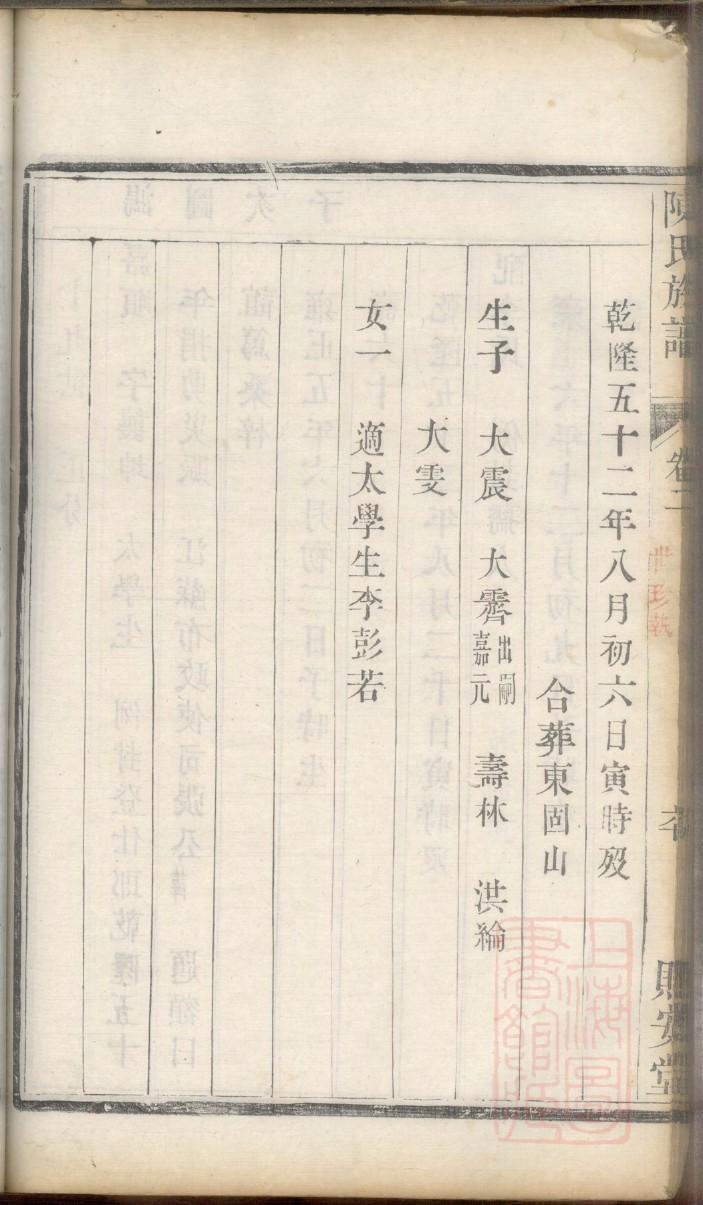 陳氏族譜
卷二
乾隆五十二年八月初六日寅時歿
合葬東固山
生子 大震 大霽出嗣嘉元 壽林 洪綸
大雯
女一 適太學生李彭若
上海圖書館藏